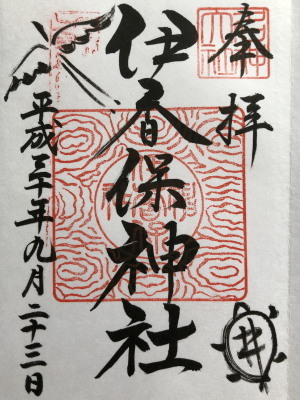 奉拝
伊香保神社
平成三十年九月二十三日